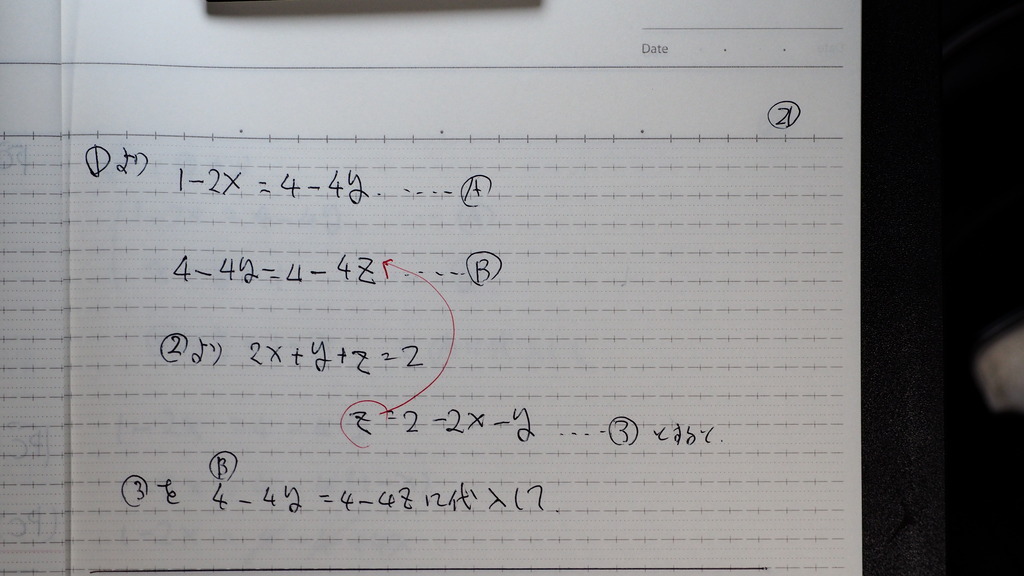 Date
㉑
①より 1-2x = 4-4y. ‥‥‥Ⓐ
4-4y=4-4z ‥‥‥Ⓑ
②より 2x+y+z=2
z=2-2x-y ‥‥③ とおいて.
Ⓑ
③を 4-4y=4-4z に代入して.